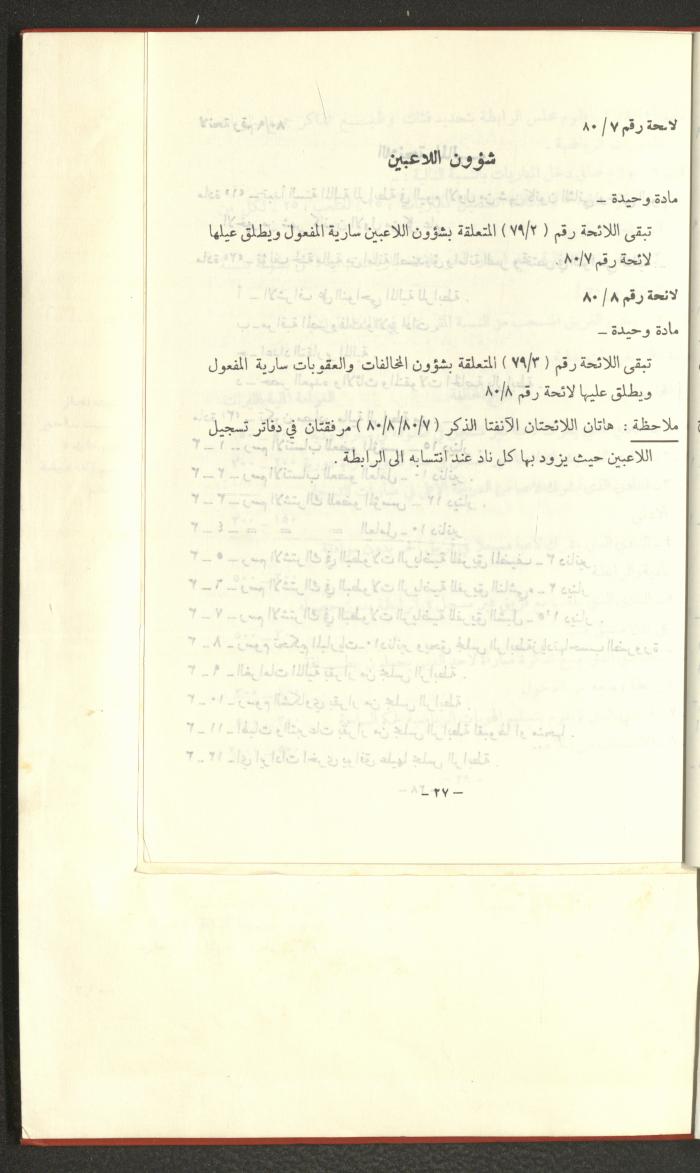 لائحة رقم ٧ / ٨٠
شؤون اللاعبين
مادة وحيدة ــ
تبقى اللائحة رقم ( ٧٩/٢ ) المتعلقة بشؤون اللاعبين سارية المفعول ويطلق عيلها
لائحة رقم ٨٠/٧ .
لائحة رقم ٨ / ٨٠
مادة وحيدة ــ
تبقى اللائحة رقم ( ٧٩/٣ ) المتعلقة بشؤون المخالفات والعقوبات سارية المفعول
ويطلق عليها لائحة رقم ٨٠/٨
ملاحظة : هاتان اللائحتان الآنفتا الذكر ( ٨٠/٨/٨٠/٧ ) مرفقتان في دفاتر تسجيل
اللاعبين حيث يزود بها كل ناد عند انتسابه الى الرابطة .
ــ ٢٧ ــ